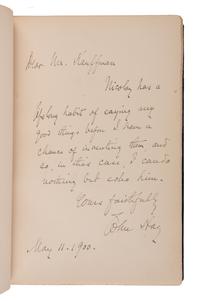 Dear Mr. Kauffman
Nicolay has a
lifelong habit of saying my
good things before I have a
chance of inventing them and
so, in this case, I can do
nothing but echo him.
Yours faithfully
John Hay
May 11. 1900.